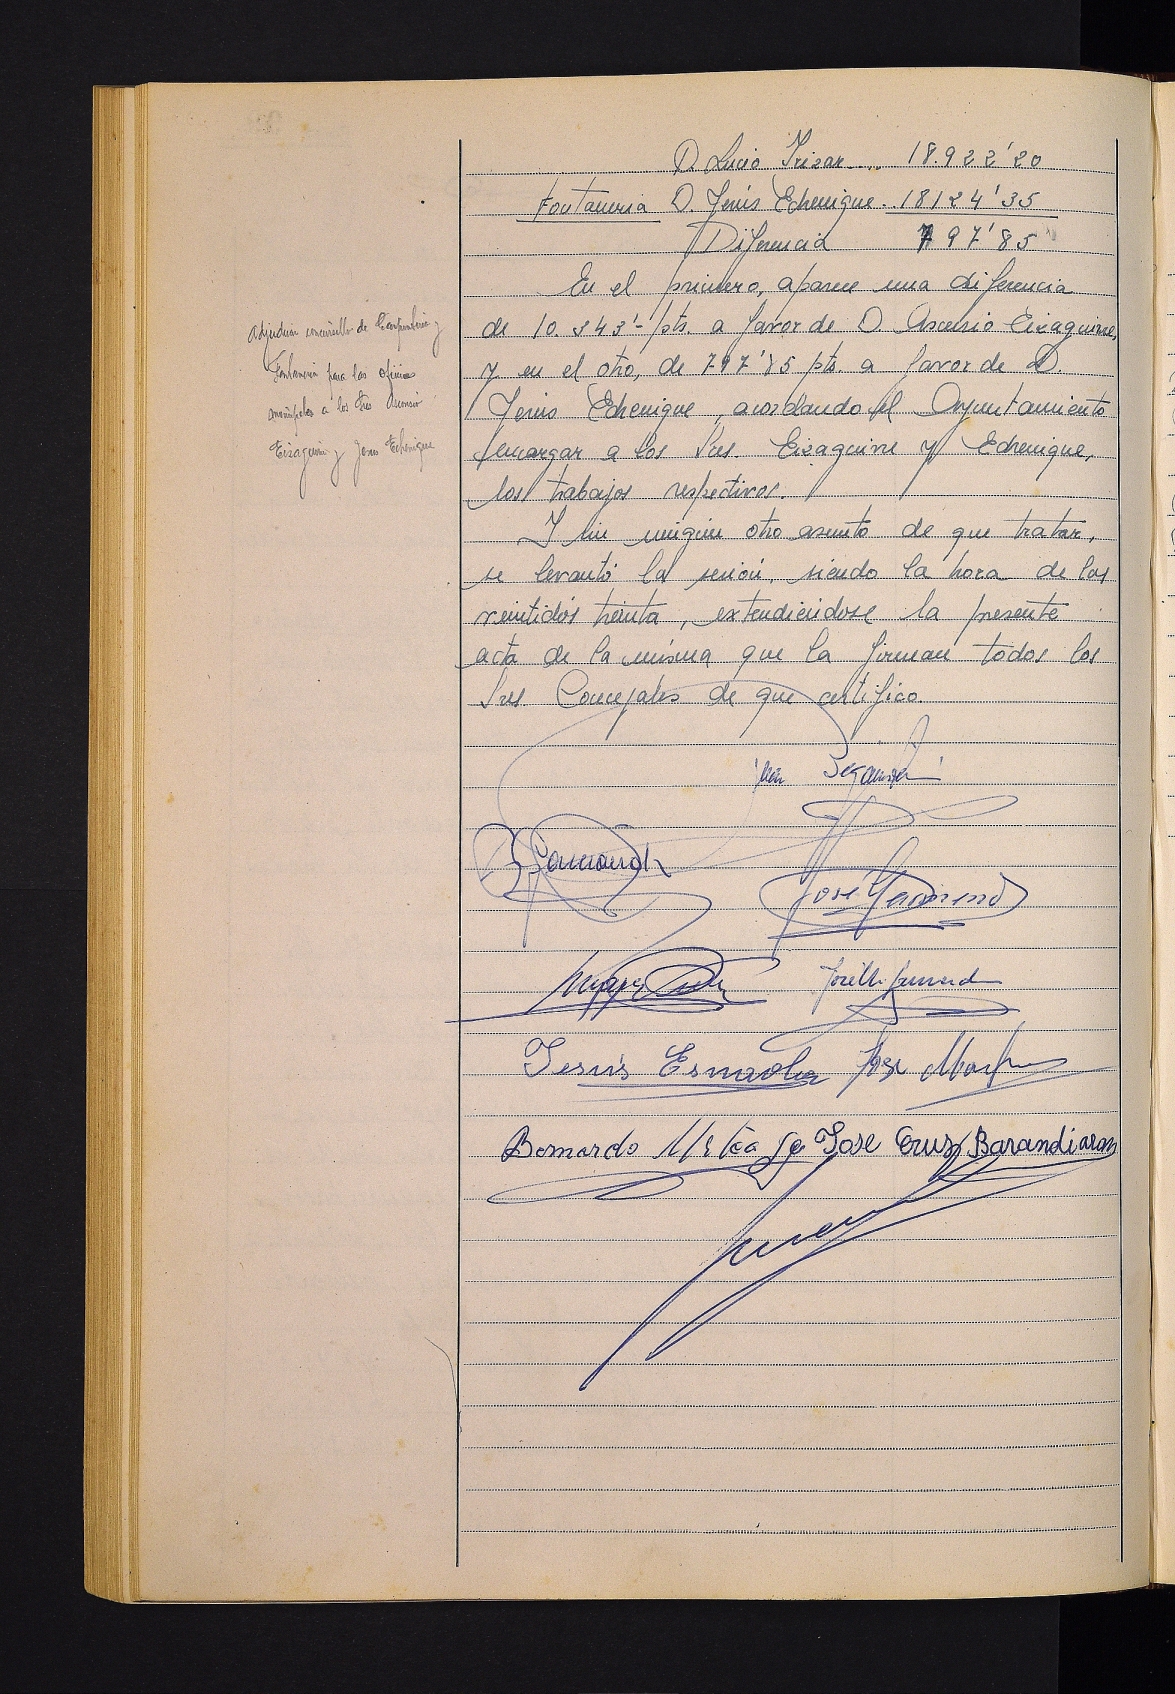 D. Lucio Irizar.... 18.922'20
Fontaneria D. Jesús Echenique. 18124'35
Diferencia 797'85
En el primero, aparece una diferencia
de 10.343'- pts. a favor de D. Ascensio Eizaguirre,
y en el otro, de 797'85 pts. a favor de D.
Jesús Echenique, acordando el Ayuntamiento
encargar a los Sres. Eizaguirre y Echenique,
los trabajos respectivos.
Y sin ningún otro asunto de que tratar,
se levantó la sesión, siendo la hora de las
veintidós treinta, extendiéndose la presente
acta de la misma que la firman todos los
Sres. Concejales de que certifico.
Adjudicar concursillo de Carpintería y
Fontanería para las oficinas
municipales a los Sres Ascensio
Eizaguirre y Jesús Echenique
José
Jesús Esnaola José
Bernardo José Cruz Barandiaran